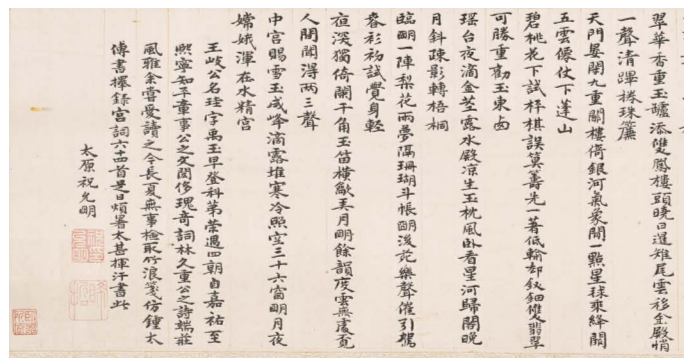 翠華香重玉罏添雙鳳樓頭曉日暹雉尾雲移金殿悄
一聲清蹕捲珠簾
天門晏開九重關樓倚銀河氣象閒一點星球乘絳闕
五雲僊仗下蓬山
碧桃花下試枰棋誤算籌先一著低輸却釵鈿雙翡翠
可勝重勸玉東卮
瑤台夜滴金莖露水殿涼生玉枕風卧看星河歸閣晚
月斜疎影轉梧桐
臨明一陣梨花雨夢隔珊瑚斗帳明後苑樂聲催引駕
春衫初試覺身輕
夜深獨倚闌干角玉笛橫歗弄月明餘韻度雲無處覓
人間聞得兩三聲
中宮賜雪玉成峰滴露堆寒冷照空三十六窗明月夜
嫦娥渾在水精宮
王岐公名珪字禹玉早登科第榮遇四朝自嘉祐至
熙寧知平章事公之文閎侈瑰奇詞林久重公之詩端莊
風雅余嘗愛讀之今長夏無事檢取竹浪箋仿鍾太
傅書擇錄宮詞六十四首是日煩暑太甚揮汗書此
太原祝允明